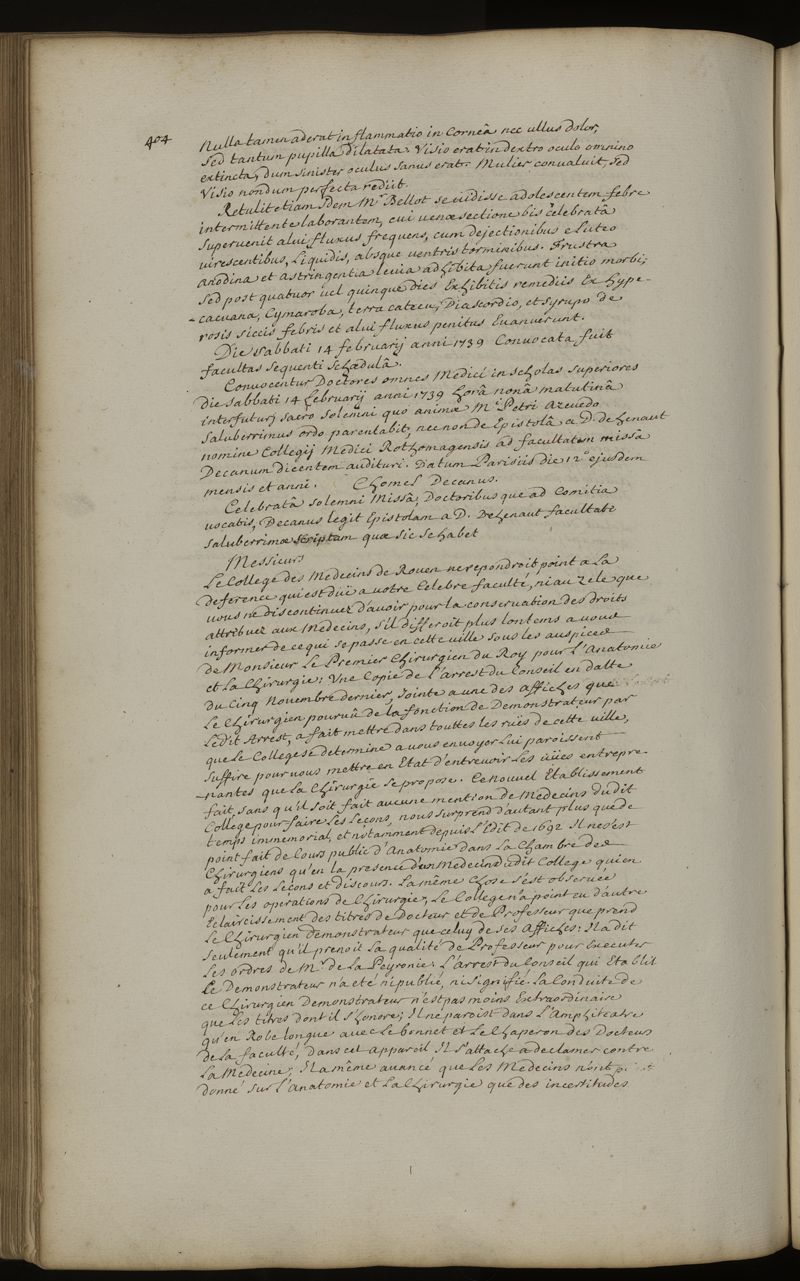 404
Nulla tamen aderat inflammatio in Corneâ nec ullus dolor,
sed tantum pupilla dilatata. Visio erat in dextro oculo omnino
extincta, dum sinister oculus sanus erat. Mulier convaluit, sed
Visio nondum perfecta rediit.
Retulit etiam idem Mr. Bellot se vidisse adolescentem febre
intermittente laborantem, cui venæ sectione bis celebratâ
supervenit alvi fluxus frequens, cum dejectionibus e luteo
virescentibus, Liquidis, absque ventris torminibus. Frustra
anodina et astringentia levia adhibita fuerunt initio morbi;
sed post quatuor vel quinque dies Exhibitis remediis Ex hype-
-cacuana, Cymaroba, terra catecu, Diascordio, et syrupo de
rosis siccis febris et alvi fluxus penitus Evanuerunt.
Die sabbati 14 februarij anni 1739 Convocata fuit
facultas sequenti schædulâ.
Convocentur Doctores omnes Medici in scholas superiores
die sabbati 14 februarij anni 1739 horâ nonâ matutinâ
interfuturj sacro solemni quo animæ Mi. Petri Azevedo
saluberrimus ordo parentabit, nec non de Epistolâ a D. dehenaut
nomine Collegij Medici Rothomagensis ad facultatem missâ
Decanum dicentem audituri. Datum Parisiis die 12° ejusdem
mensis et anni. Chomel Decanus.
Celebratâ solemni Missâ, Doctoribusque ad Comitia
vocatis, Decanus legit Epistolam a D. Dehenaut facultati
saluberrimæ scriptam quæ sic se habet
Messieurs
Le College des Medecins de Rouen ne repondroit point a la
deference qui est duë a votre Celebre faculté, ni au zele que
vous ne discontinuez d'avoir pour la conservation des droits
attribuez aux Medecins, s'il differoit plus lontems a vous
informer de ce qui se passe en cette ville sous les auspices
de Monsieur Le Premier Chirurgien du Roy pour L'Anatomie
et La Chirurgie: Une Copie de l'arrest du Conseil en datte
du Cinq Novembre dernier, Jointe a une des affiches que
Le Chirurgien pourvû de la fonction de Demonstrateur par
Ledit Arrest, a fait mettre dans touttes les ruës de cette ville,
que Le College se determine a vous envoyer Lui paroissent
suffire pour vous mettre en Etat d'entrevoir Les vües entrepre-
-nantes que La Chirurgie se propose. Ce nouvel Etablissement
fait, sans qu'il soit fait aucune mention de Medecins dudit
College pour faire Les Leçons, nous surprend d'autant plus que de
temps immemorial, et notamment depuis L'Edit de 1692 Il ne s'est
point fait de Cours public d'Anatomie dans La Chambre des
Chirurgiens qu'en la presence d'un Medecin dudit College qui en
a fait Les Leçons et discours. La même Chose s'est observée
pour Les operations de Chirurgie, Le College n'a point eu d'autre
Eclaircissement des titres de Docteur et de Professeur que prend
Le Chirurgien Demonstrateur que celuy de ses Affiches: Il a dit
seulement qu'il prenoit La qualité de Professeur pour Executer
Les ordres de Mr. de La Peyronie. L'arrest du Conseil qui Etablit
Le Demonstrateur n'a eté ni publié, ni signifié. La Conduite de
ce Chirurgien Demonstrateur n'est pas moins Extraordinaire
que Les titres dont il s'honore; Il ne paroist dans L'Amphiteatre
qu'en Robe longue avec Le bonnet et Le Chaperon des Docteurs
de La faculté, dans cet appareil Il s'attache a declamer contre
La Medecine; Il a même avancé que Les Medecins n'ont
donné sur L'anatomie et La Chirurgie que des incertitudes